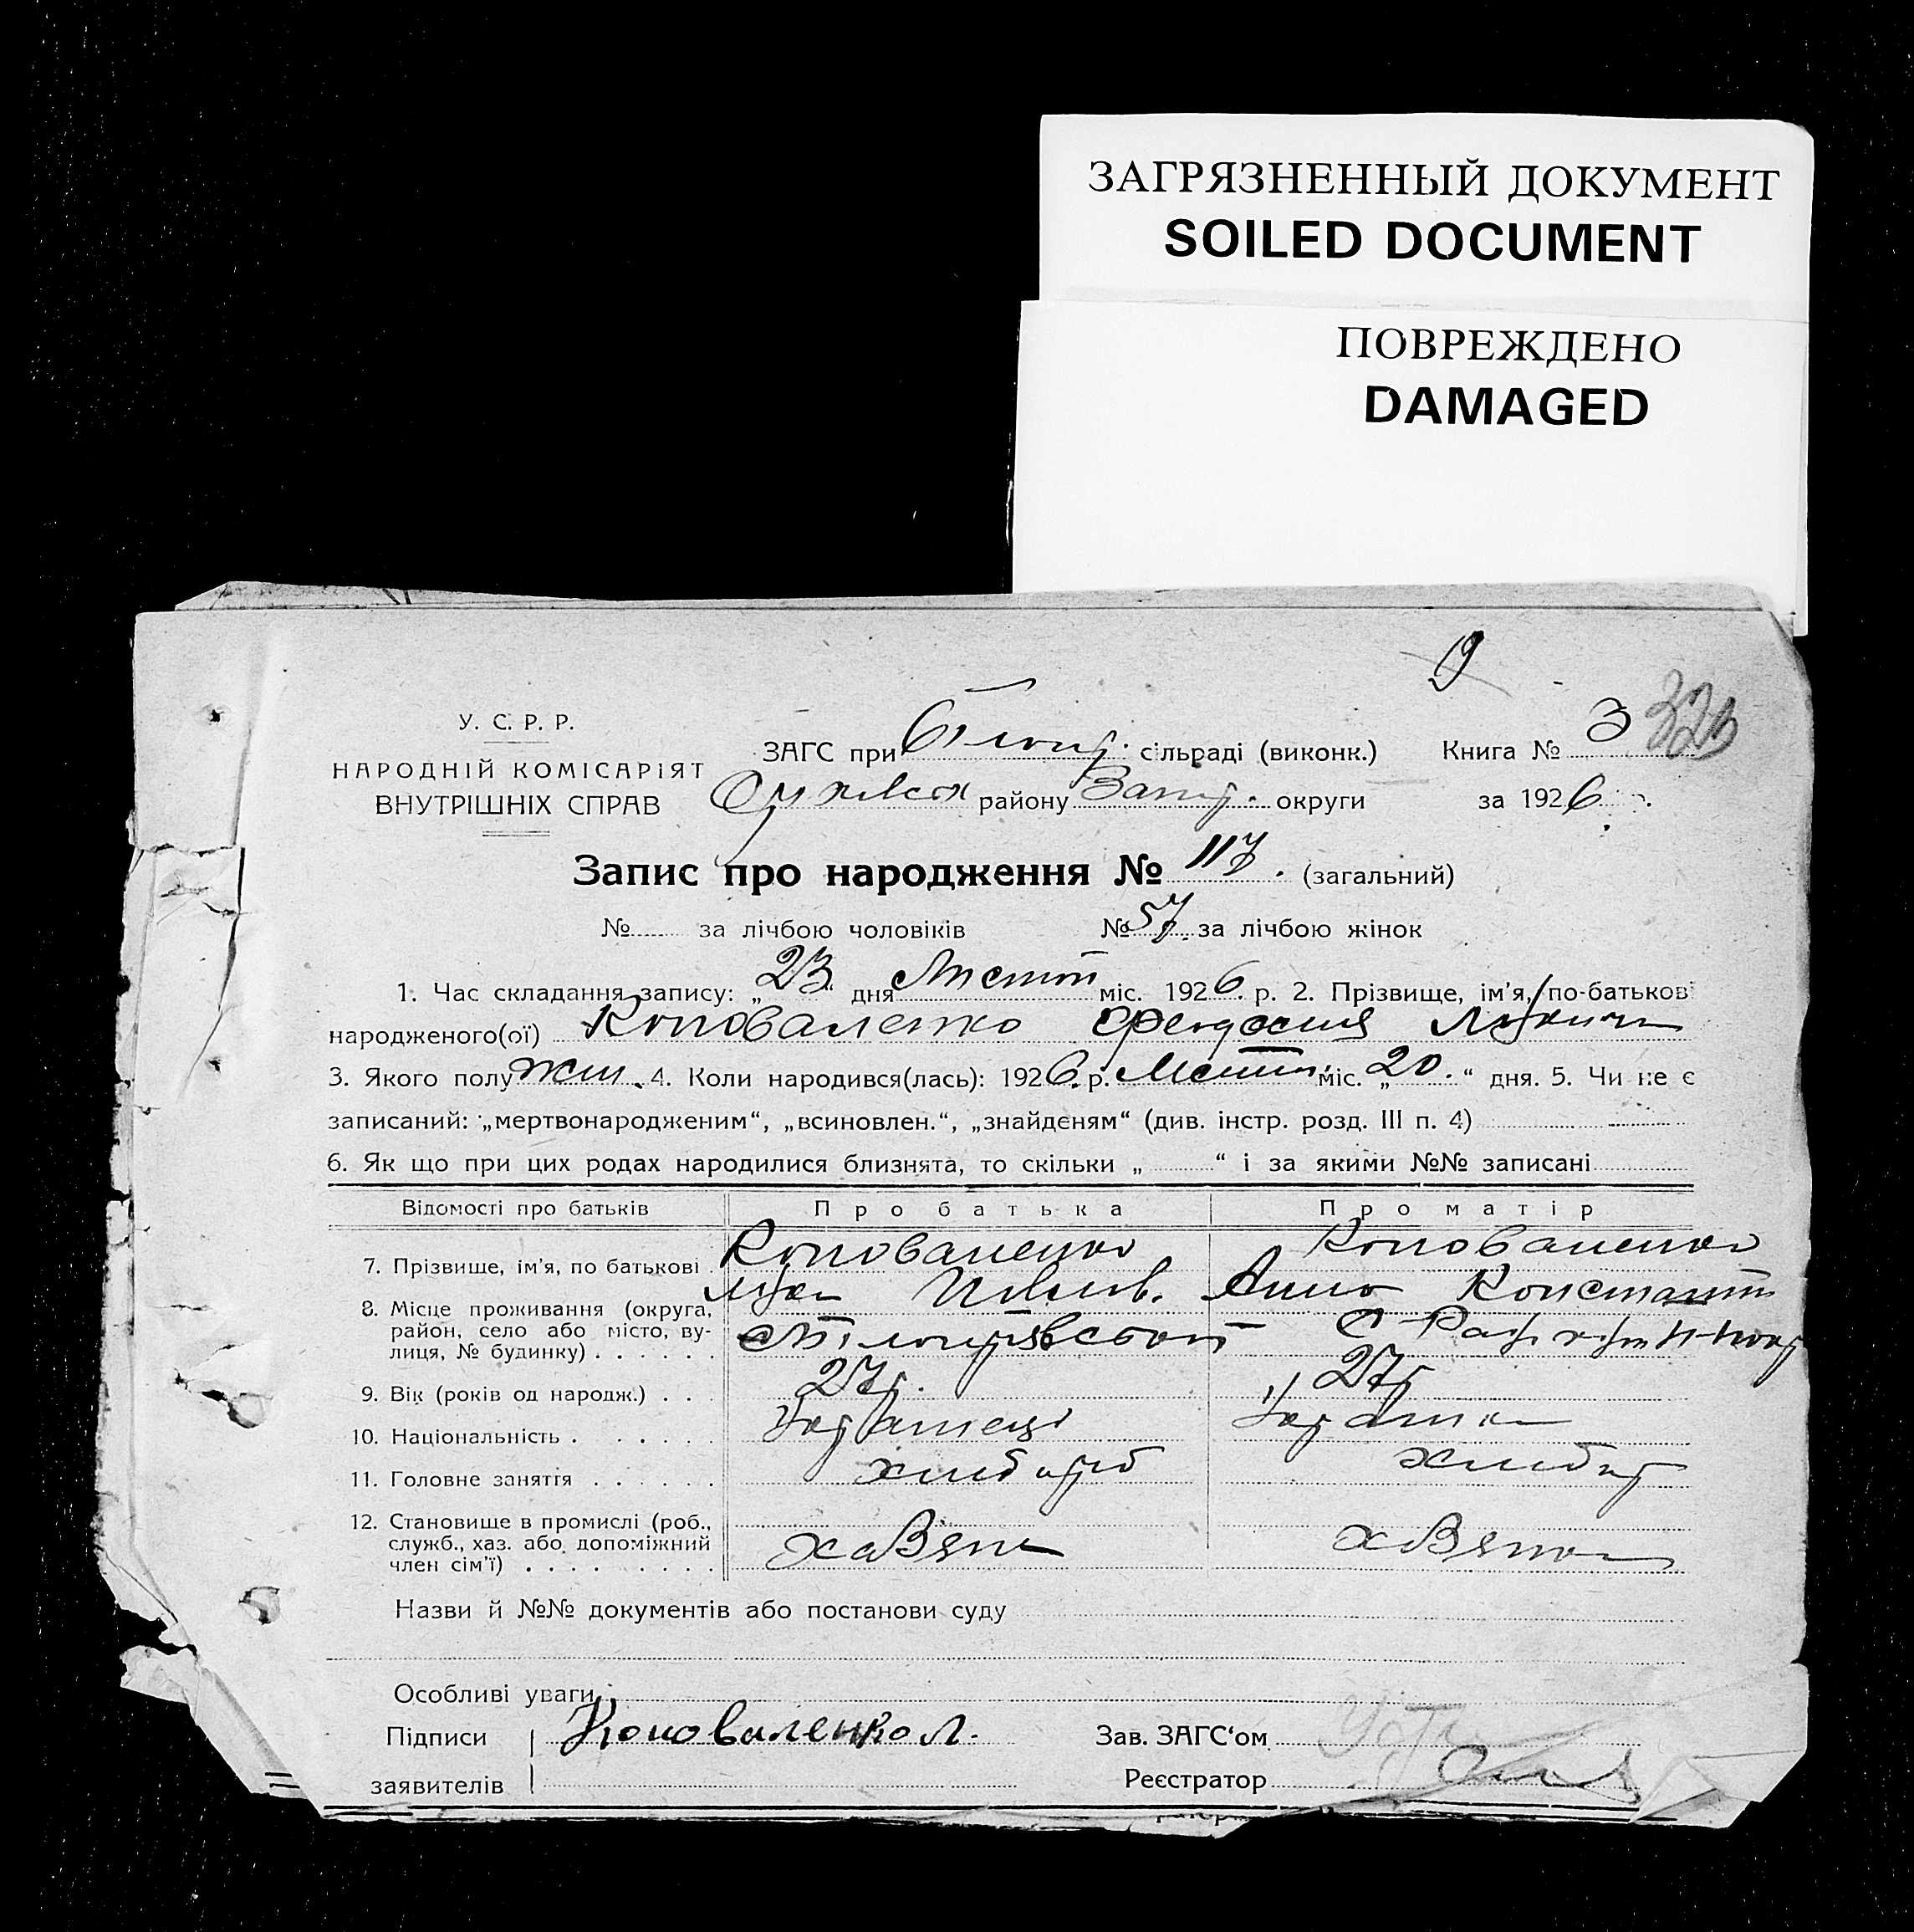 ЗАГРЯЗНЕННЫЙ ДОКУМЕНТ
SOILED DOCUMENT
ПОВРЕЖДЕНО
DAMAGED
9
У. С. Р. Р.
НАРОДНІЙ КОМІСАРІЯТ
ВНУТРІШНІХ СПРАВ
ЗАГС при сільраді (виконк.) Книга № 3
району Запор. округи за 1926
Запис про народження № 117. (загальний)
№ за лічбою чоловіків № 57. за лічбою жінок
1. Час складання запису: „23“ дня Листоп міс. 1926. р. 2. Прізвище, ім'я, по-батькові
народженого(ої) Коноваленко Феодосия
3. Якого полу жін. 4. Коли народився(лась): 1926. р. міс. „20.“ дня. 5. Чи не є
записаний: „мертвонародженим“, „всиновлен.“, „знайденям“ (див. інстр. розд. III п. 4)
6. Як що при цих родах народилися близнята, то скільки „ “ і за якими №№ записані
Відомості про батьків Про батька Про матір
7. Прізвище, ім'я, по батькові Коноваленко Коноваленко
Анна Констант
8. Місце проживання (округа,
район, село або місто, ву-
лиця, № будинку)
9. Вік (років од народж.) 27р. 27р
10. Національність Українець Українка
11. Головне заняття хлібороб хлібор
12. Становище в промислі (роб.,
служб., хаз. або допоміжний
член сім'ї)
Назви й №№ документів або постанови суду
Особливі уваги
Підписи Коноваленко Л. Зав. ЗАГС'ом
заявителів Реєстратор